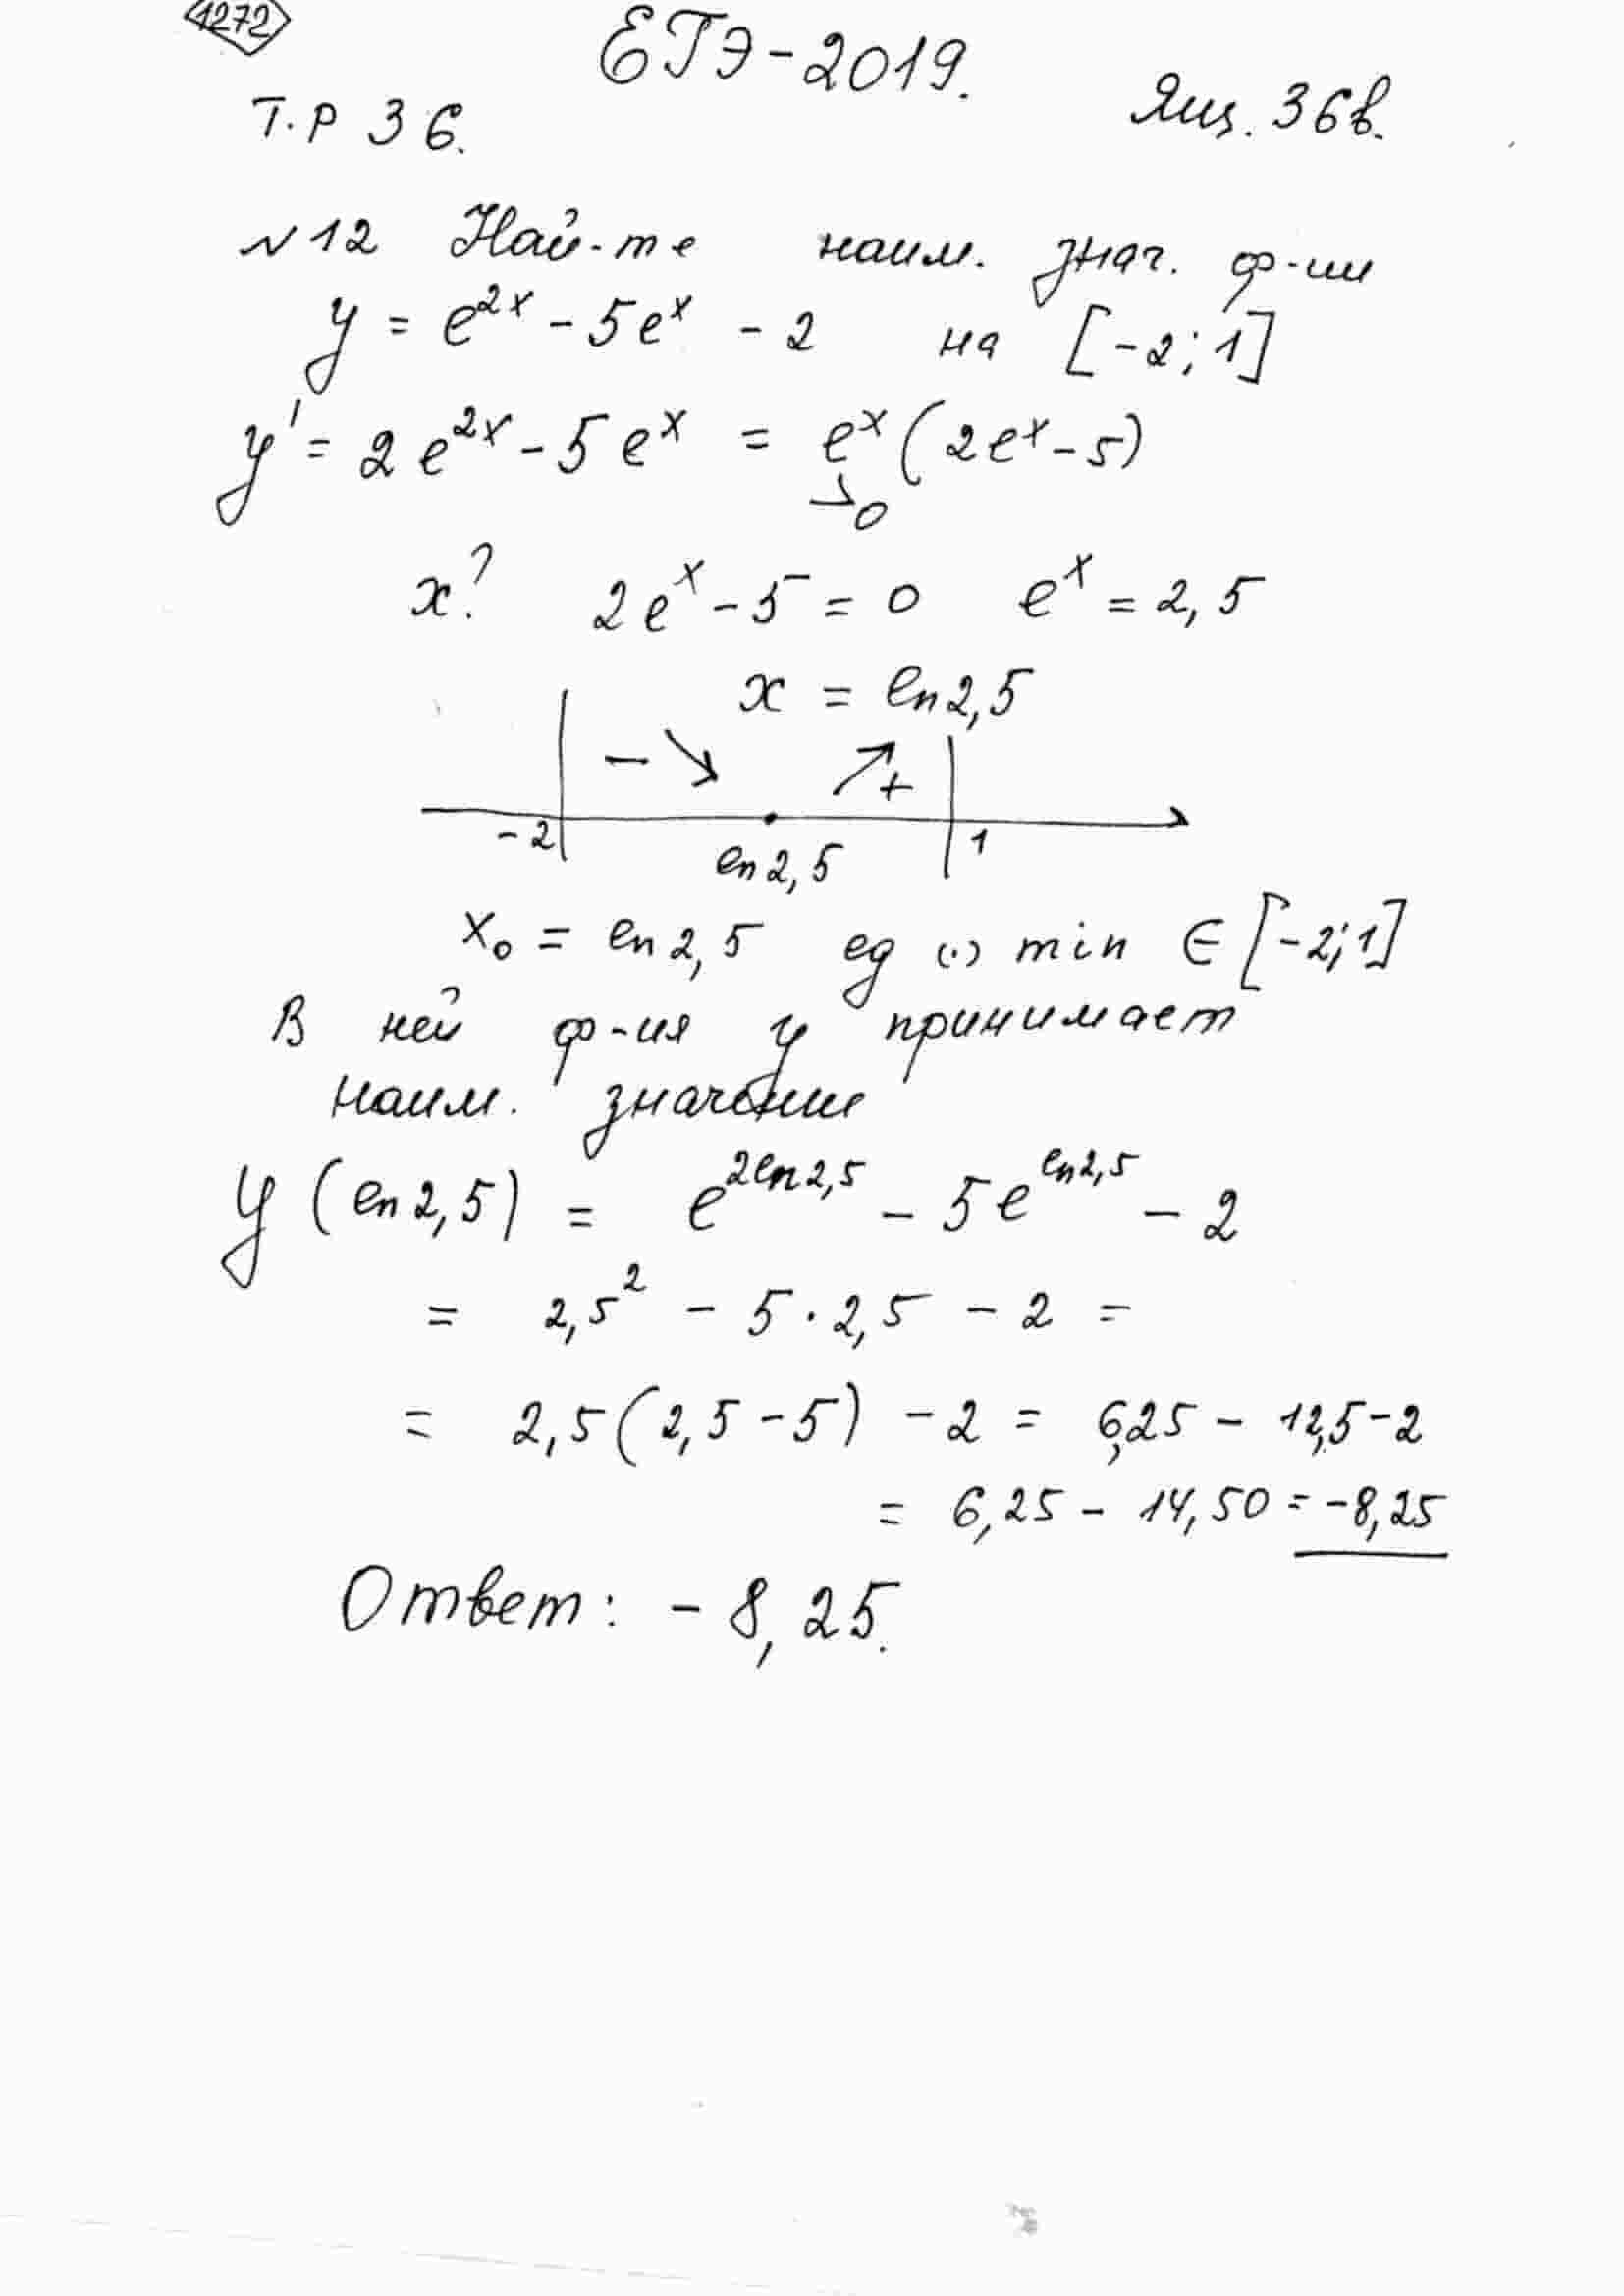 1272
ЕГЭ-2019.
Т.Р 36. Ящ. 36в.
N12 Най-те наим. знач. ф-ии
y = e^{2x} - 5e^x - 2 на [-2; 1]
y' = 2e^{2x} - 5e^x = e^x (2e^x - 5)
>0
x? 2e^x - 5 = 0 e^x = 2,5
x = ln2,5
- ↘ ↗+
-2 ln2,5 1
x₀ = ln2,5 ед (·) min ∈ [-2; 1]
В ней ф-ия y принимает
наим. значение
y (ln2,5) = e^{2ln2,5} - 5e^{ln2,5} - 2
= 2,5² - 5·2,5 - 2 =
= 2,5(2,5-5) - 2 = 6,25 - 12,5-2
= 6,25 - 14,50 = -8,25
Ответ: -8,25.